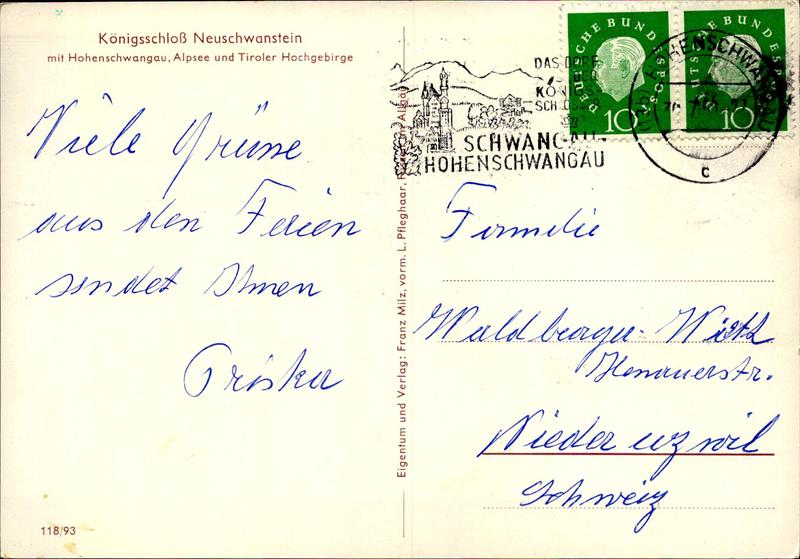 Königsschloß Neuschwanstein
mit Hohenschwangau, Alpsee und Tiroler Hochgebirge
Viele Grüsse
aus den Ferien
sendet Ihnen
118/93
Eigentum und Verlag: Franz Milz, vorm. L. Pfleghaar,
DAS DORF
DER
KÖNIGS-
SCHLÖSSER
SCHWANGAU-
HOHENSCHWANGAU
HOHENSCHWANGAU
c
DEUTSCHE BUNDESPOST
10
DEUTSCHE BUNDESPOST
10
Familie
Waldburger-Wirth
Henauerstr.
Niederuzwil
Schweiz